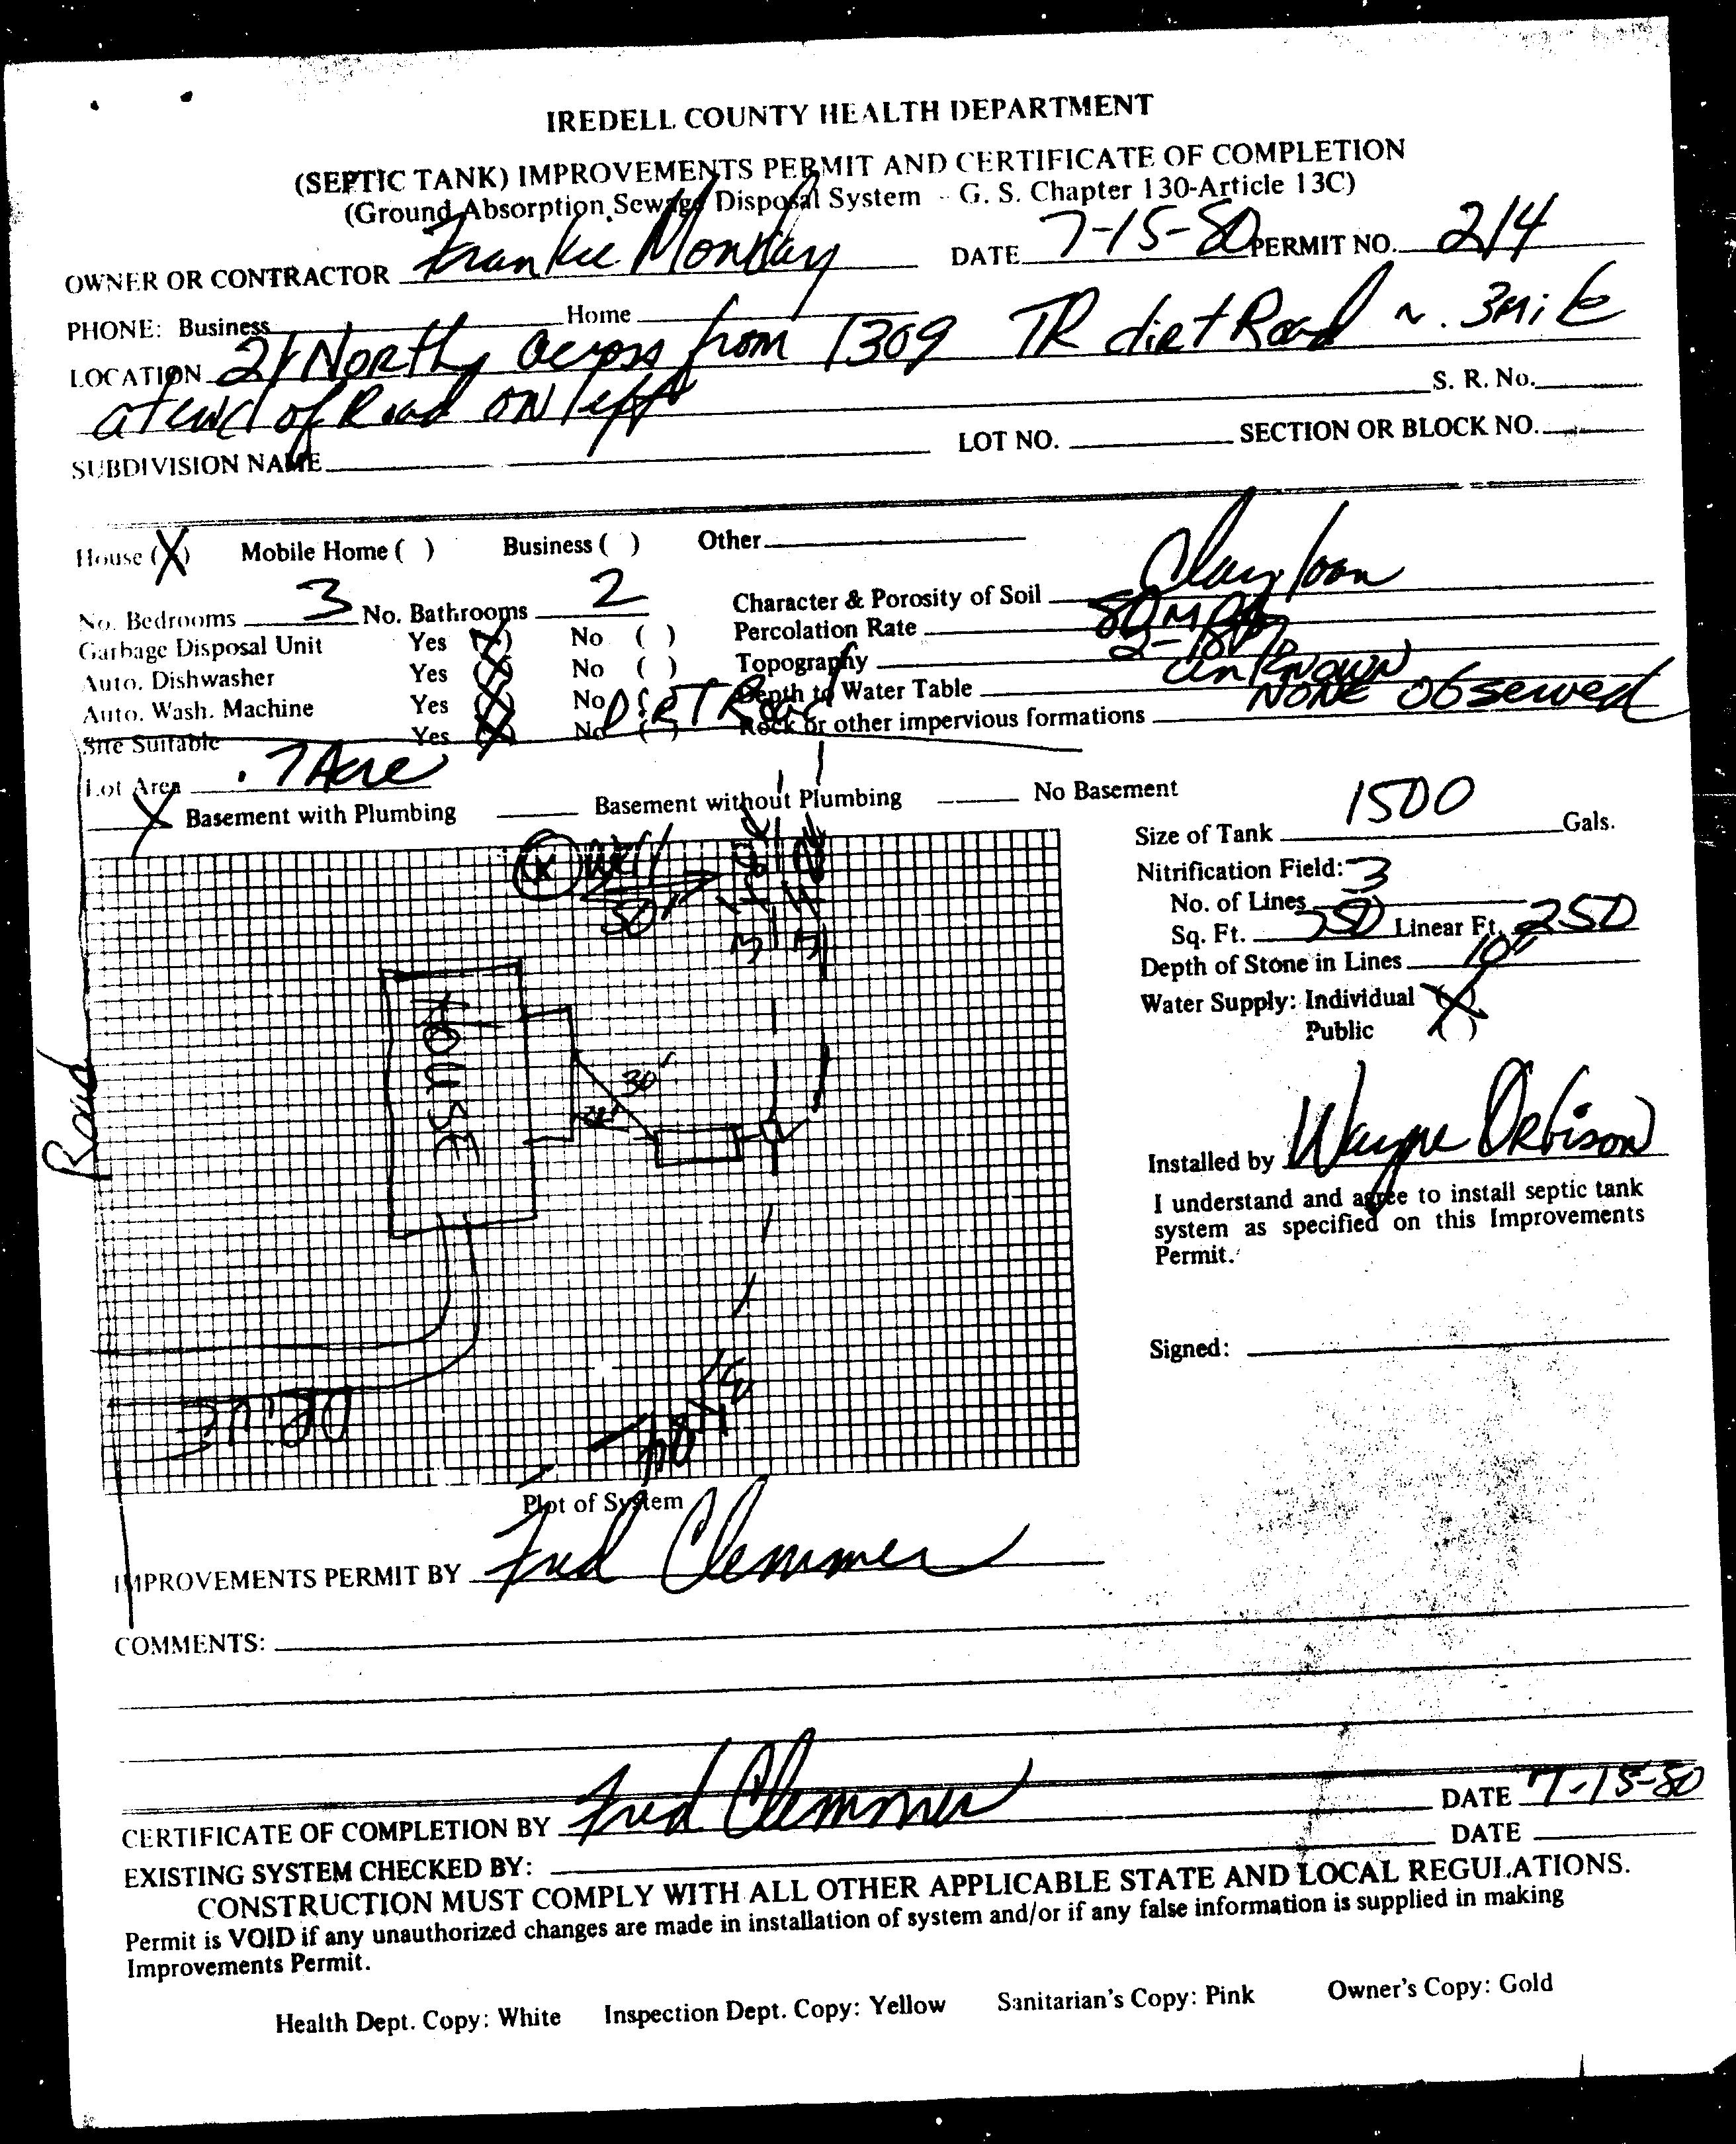 IREDELL COUNTY HEALTH DEPARTMENT
(SEPTIC TANK) IMPROVEMENTS PERMIT AND CERTIFICATE OF COMPLETION
(Ground Absorption Sewage Disposal System - G. S. Chapter 130-Article 13C)
OWNER OR CONTRACTOR Frankie Monday DATE 7-15-80 PERMIT NO. 214
PHONE: Business Home
LOCATION 21 North, across from 1309 TR dirt Road ~ .3 mile
at end of Road ON left S. R. No.
SUBDIVISION NAME LOT NO. SECTION OR BLOCK NO.
House (X) Mobile Home ( ) Business ( ) Other
No. Bedrooms 3 No. Bathrooms 2 Character & Porosity of Soil Clay loam
Garbage Disposal Unit Yes (X) No ( ) Percolation Rate 80 MPI
Auto. Dishwasher Yes (X) No ( ) Topography
Auto. Wash. Machine Yes (X) No ( ) Depth to Water Table unknown
Site Suitable Yes (X) No ( ) Rock or other impervious formations NONE observed
DIRT Road
Lot Area .7 Acre
X Basement with Plumbing Basement without Plumbing No Basement
Size of Tank 1500 Gals.
Nitrification Field: 3
No. of Lines
Sq. Ft. 750 Linear Ft. 250
Depth of Stone in Lines 10"
Water Supply: Individual (X)
Public ( )
X Well
50'
HOUSE
30'
Road
DRIVE
Installed by Wayne Orbison
I understand and agree to install septic tank
system as specified on this Improvements
Permit.
Signed:
Plot of System
IMPROVEMENTS PERMIT BY Fred Clemmer
COMMENTS:
CERTIFICATE OF COMPLETION BY Fred Clemmer DATE 7-15-80
EXISTING SYSTEM CHECKED BY: DATE
CONSTRUCTION MUST COMPLY WITH ALL OTHER APPLICABLE STATE AND LOCAL REGULATIONS.
Permit is VOID if any unauthorized changes are made in installation of system and/or if any false information is supplied in making
Improvements Permit.
Health Dept. Copy: White Inspection Dept. Copy: Yellow Sanitarian's Copy: Pink Owner's Copy: Gold